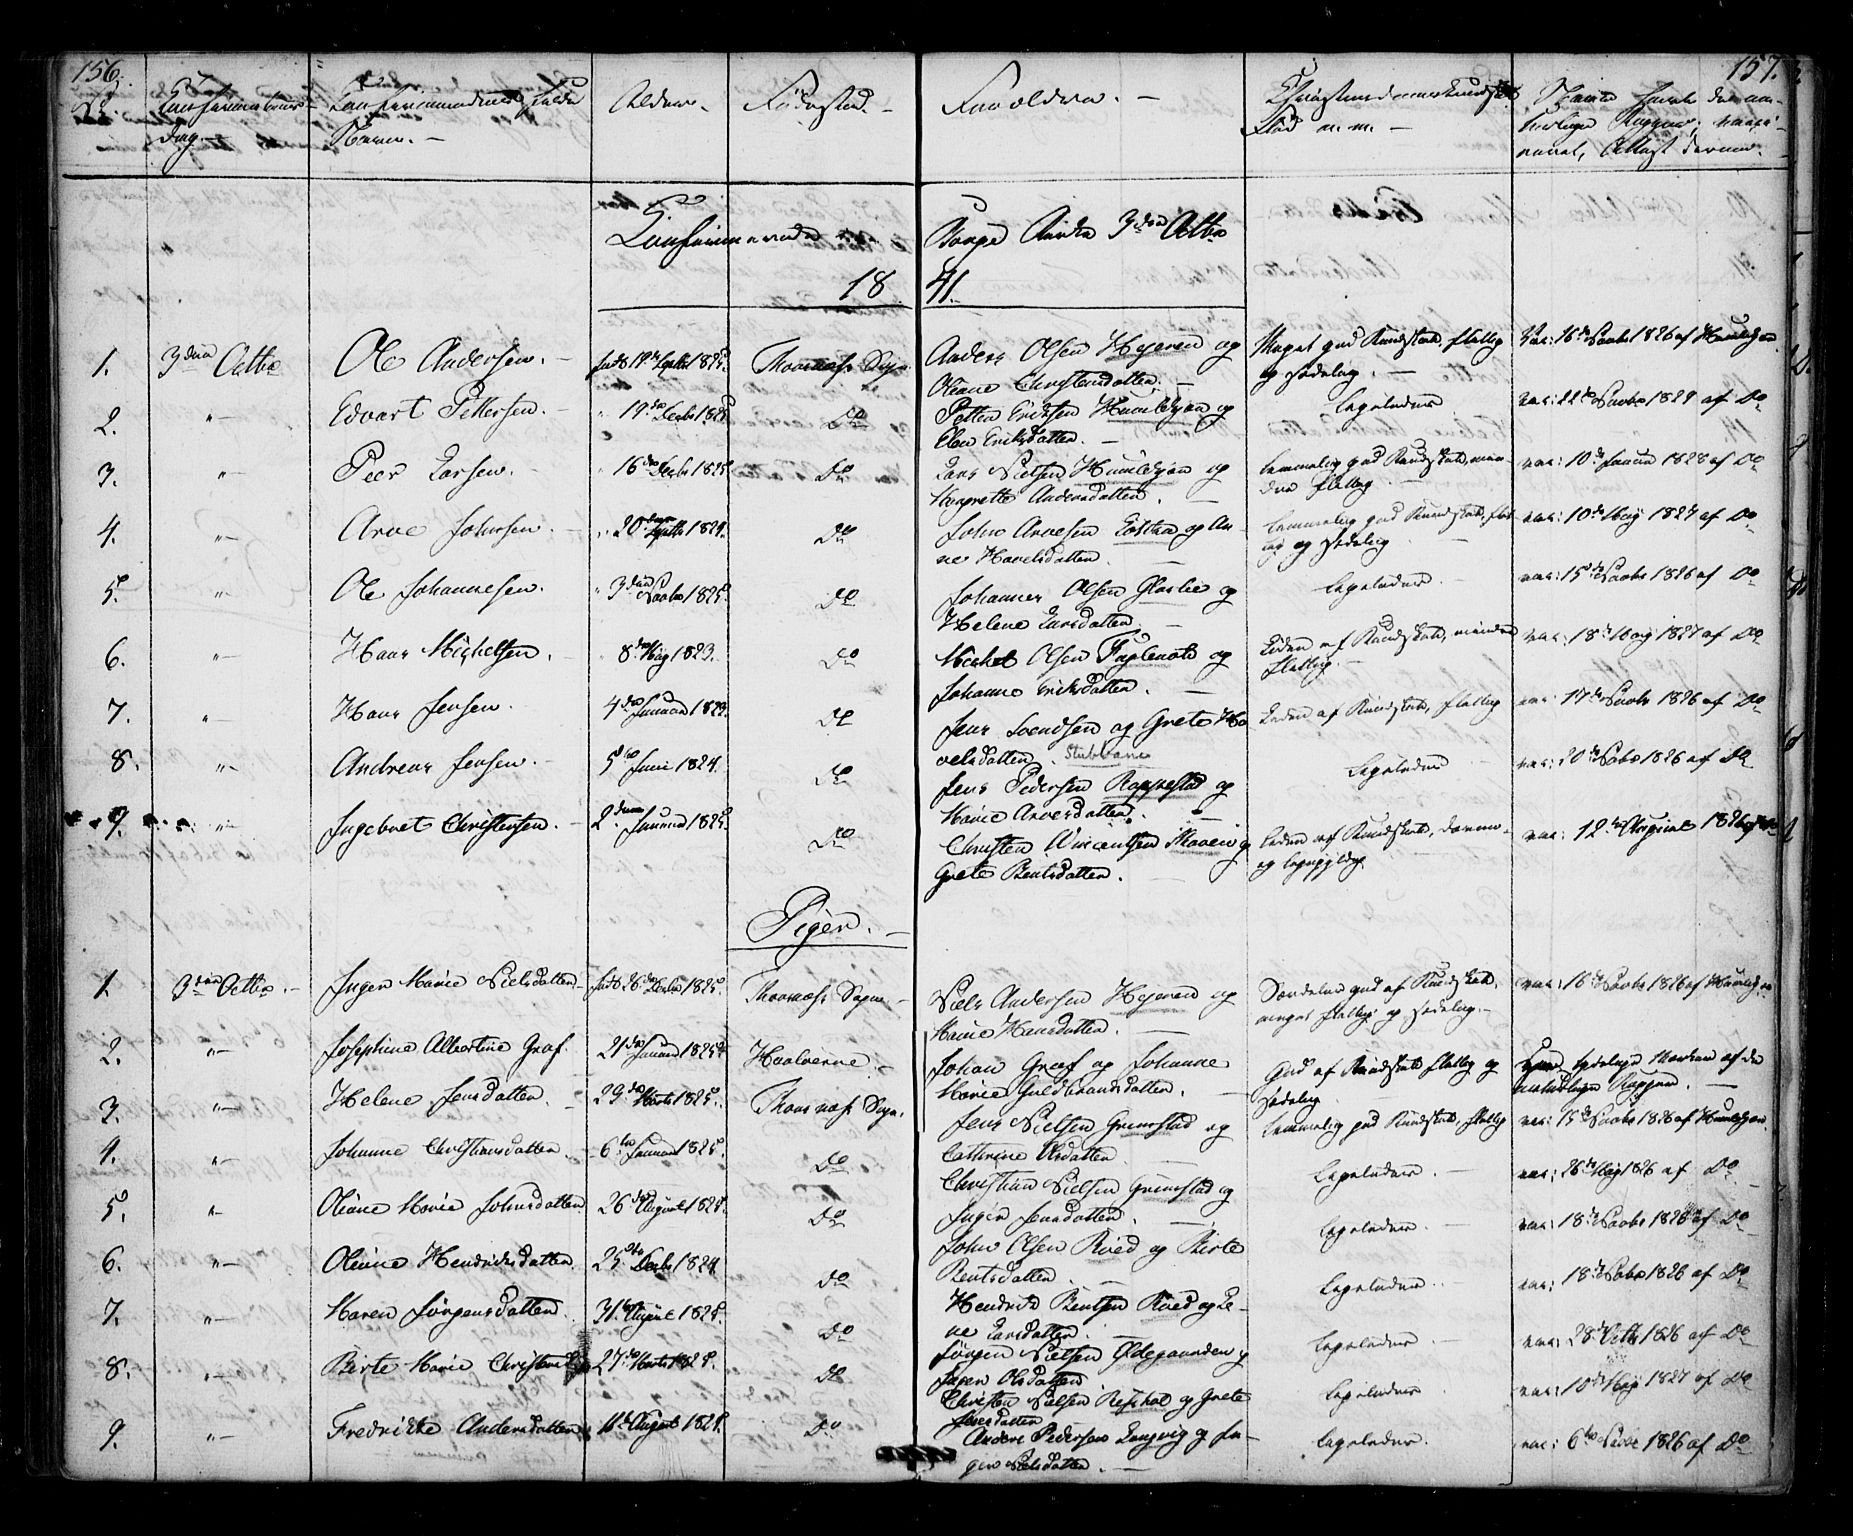 156.
157.
No. Confirmations-
Dag.
Confirmandernes fulde
Navn.
Alder.
Fødested.
Forældre.
Christendoms Kundskab
Flid m. m.
Naar havte de na-
turlige Kopper; vacci-
neret, Attest derom.
Confirmerede i Borge Kirke 3die Octbr
1841.
1. 3die Octbr Ole Andersen. født 19de Septbr 1825. Thorsnæs Sogn
Anders Olsen Hejeren og
Oleane Christensdatter.
Meget god Kundskab, flittig
og sædelig.
vac: 16de Novbr 1826 af Homledjan
2. " Edvart Pettersen. " 19de Decbr 1825 Do
Petter Eriksen Humledjan og
Elen Eriksdatter.
Ligeledes
vac: 22de Novbr 1829 af Do
3. " Peer Larsen. " 16de Decbr 1825 Do
Lars Nielsen Humledjan og
Margrette Andersdatter.
Temmelig god Kundskab, min-
dre flittig.
vac: 10de Januar 1828 af Do
4. " Arve Johnsen. " 20de Septbr 1824. Do
John Arvesen og An-
ne Havelsdatter.
Temmelig god Kundskab, flit-
tig og sædelig
vac: 10de May 1827 af Do
5. " Ole Johannesen. " 3die Novbr 1825. Do
Johannes Olsen Glaslie og
Helene Larsdatter.
Ligeledes
vac: 15de Novbr 1826 af Do
6. " Hans Michelsen. 8de May 1823. Do
Michel Olsen Fuglenæb og
Johanne Eriksdatter.
Liden af Kundskab, mindre
flittig.
vac: 18de May 1827 af Do
7. " Hans Jensen. 4de Januar 1823. Do
Jens Svendsen og Grete Ha-
velsdatter. Stubberne
Liden af Kundskab, flittig
vac: 17de Novbr 1826 af Do
8. " Andreas Jensen. 5te Juni 1824. Do
Jens Pedersen Rappestad og
Marie Arvesdatter.
Ligeledes
vac: 20de Novbr 1826 af Do
9. " Ingebret Christensen. 2den Januar 1825. Do
Christen Wincentsen Moen og
Grete Bentsdatter.
Liden af Kundskab,
og ligegyldig
vac: 12te August 1826 af Do
Piger.
1. 3die Octbr Inger Marie Nielsdatter født 26de Decbr 1825. Thorsnæs Sogn
Niels Andersen Hejeren og
Marie Hansdatter.
Særdeles god af Kundskab,
meget flittig og sædelig.
vac: 16de Novbr 1826 af Humledjan
2. " Josephine Albertine Graf. 21de Januar 1825 Haalverne
Johan Graf og Johanne
Marie Guldbrandsdatter.
God af Kundskab, flittig og
sædelig
tydelige Mærker af de
naturlige Kopper.
3. " Helene Jensdatter. 29de Marts 1825. Thorsnæs Sogn.
Jens Nielsen Grimstad og
Cathrine Olsdatter.
Temmelig god Kundskab, flittig
vac: 15de Novbr 1826 af Humledjan
4. " Johanne Christiansdatter. 6te Januar 1825. Do
Christian Nielsen Grimstad og
Inger Jensdatter.
Ligeledes
vac: 26de May 1826 af Do
5. " Oleane Marie Johnsdatter 26de August 1824. Do
John Olsen Röed og Birte
Bentsdatter.
Ligeledes
vac: 18de Novbr 1826 af Do
6. " Oleane Hendriksdatter. 25de Decbr 1824 Do
Hendrik Bentsen Röed og Le-
ne Larsdatter.
Ligeledes
vac: 18de Novbr 1826 af Do
7. " Maren Jørgensdatter. 31te August 1825. Do
Jørgen Nielsen Ødegaarden og
Olsdatter
Ligeledes
vac: 28de Octbr 1826 af Do
8. " Birte Marie Christensd 27de Marts 1825. Do
Christen Nielsen og Grete
Jensdatter
Ligeledes
vac: 10de May 1827 af Do
9. " Fredrikke Andersdatter 11te August 1824. Do
Anders Pedersen Langvig og In-
ger Nielsdatter.
Ligeledes.
vac: 6te Novbr 1826 af Do